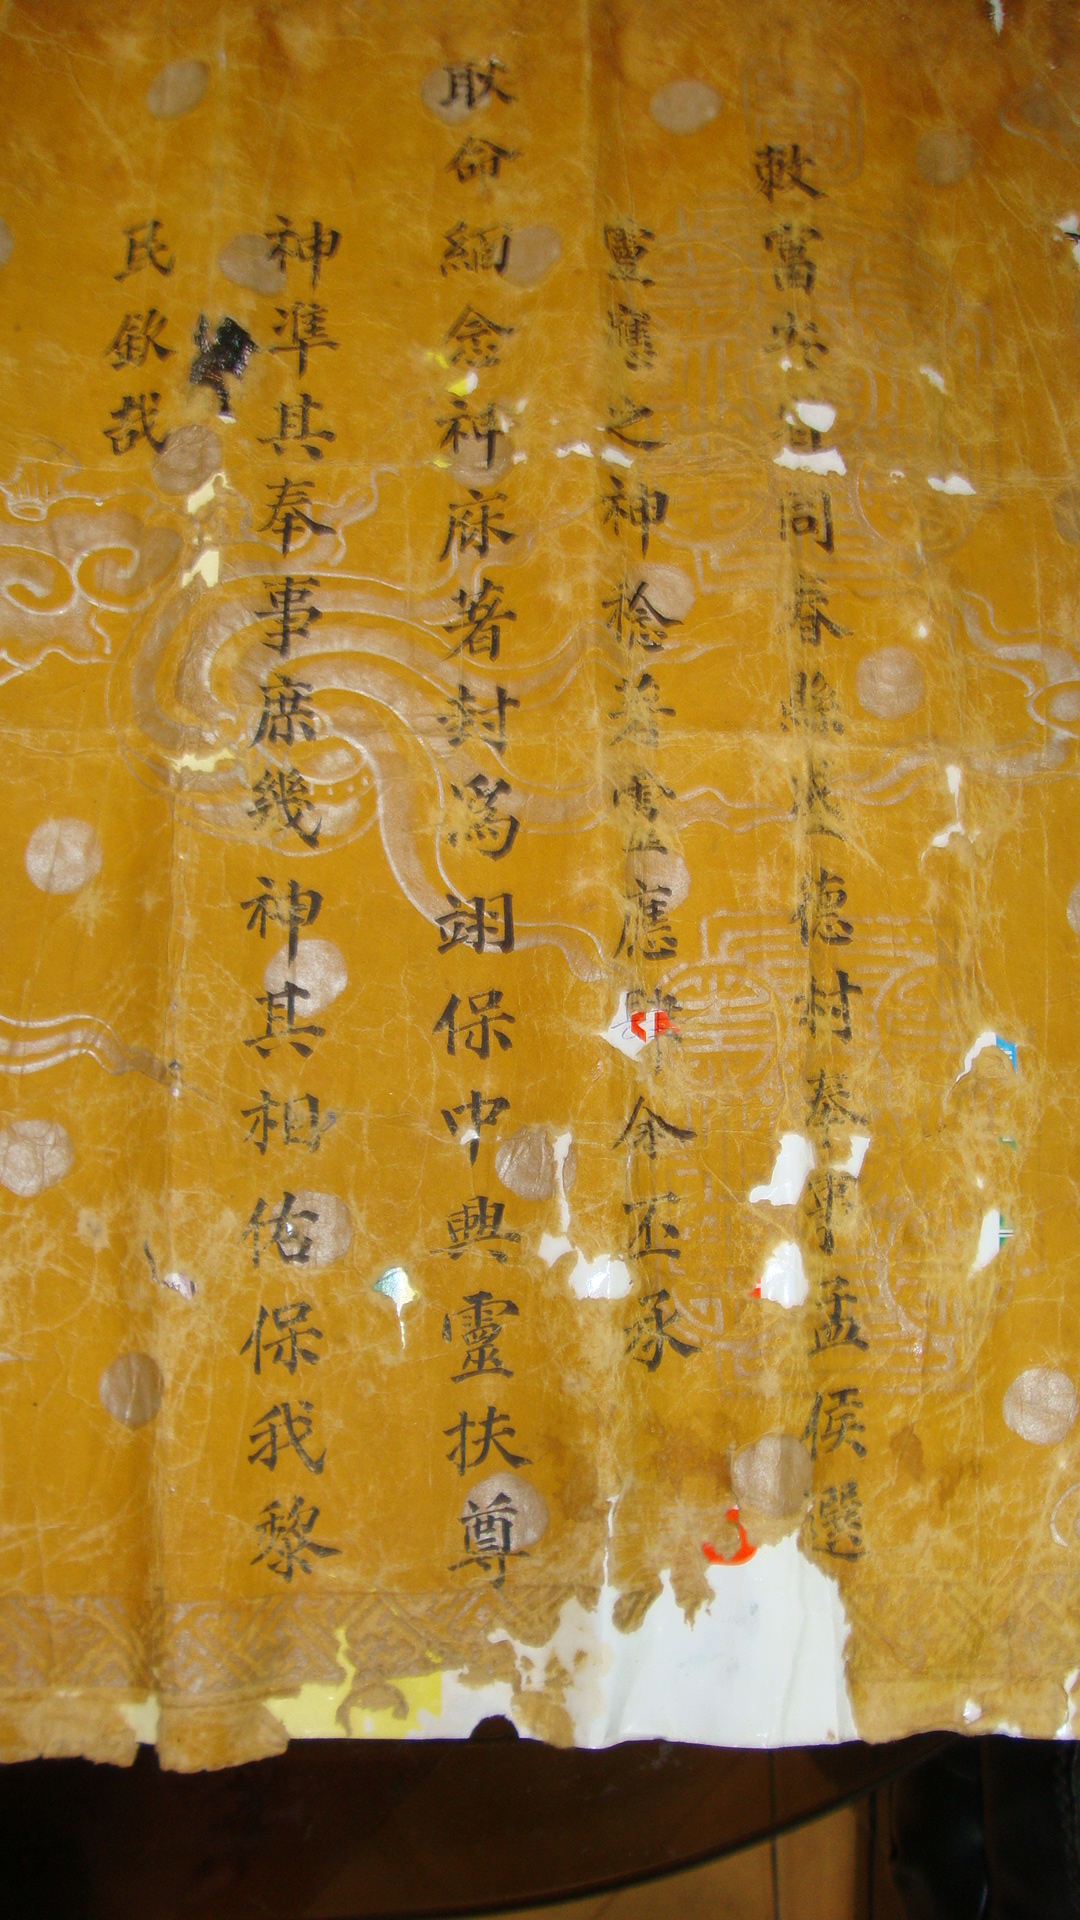 敕富安省同春縣德村奉事孟侯選
靈應之神稔著靈應肆今丕承
耿命緬念神庥著封爲翊保中興靈扶尊
神準其奉事庶幾神其相佑保我黎
民欽哉